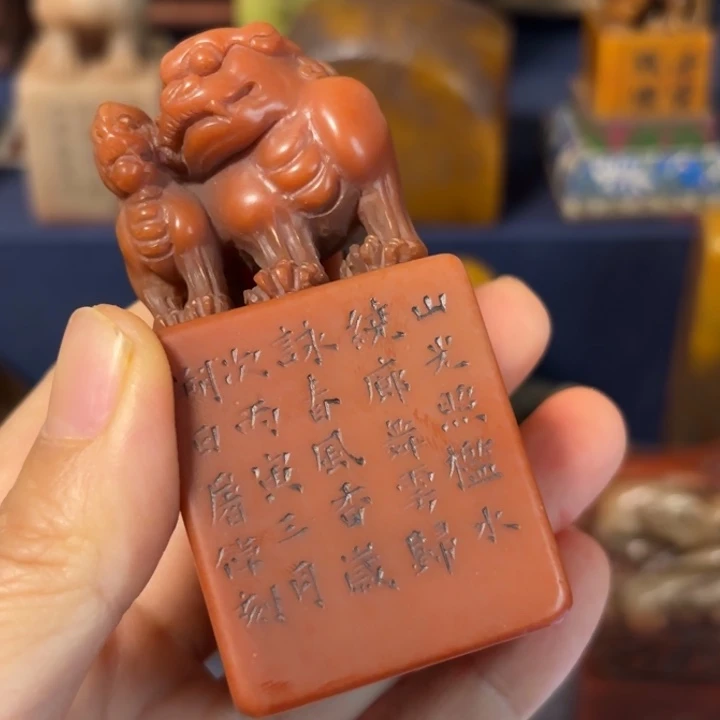 山光照檻水
繞廊舞雩歸
詠春風香歲
次丙寅三月
朔日刻